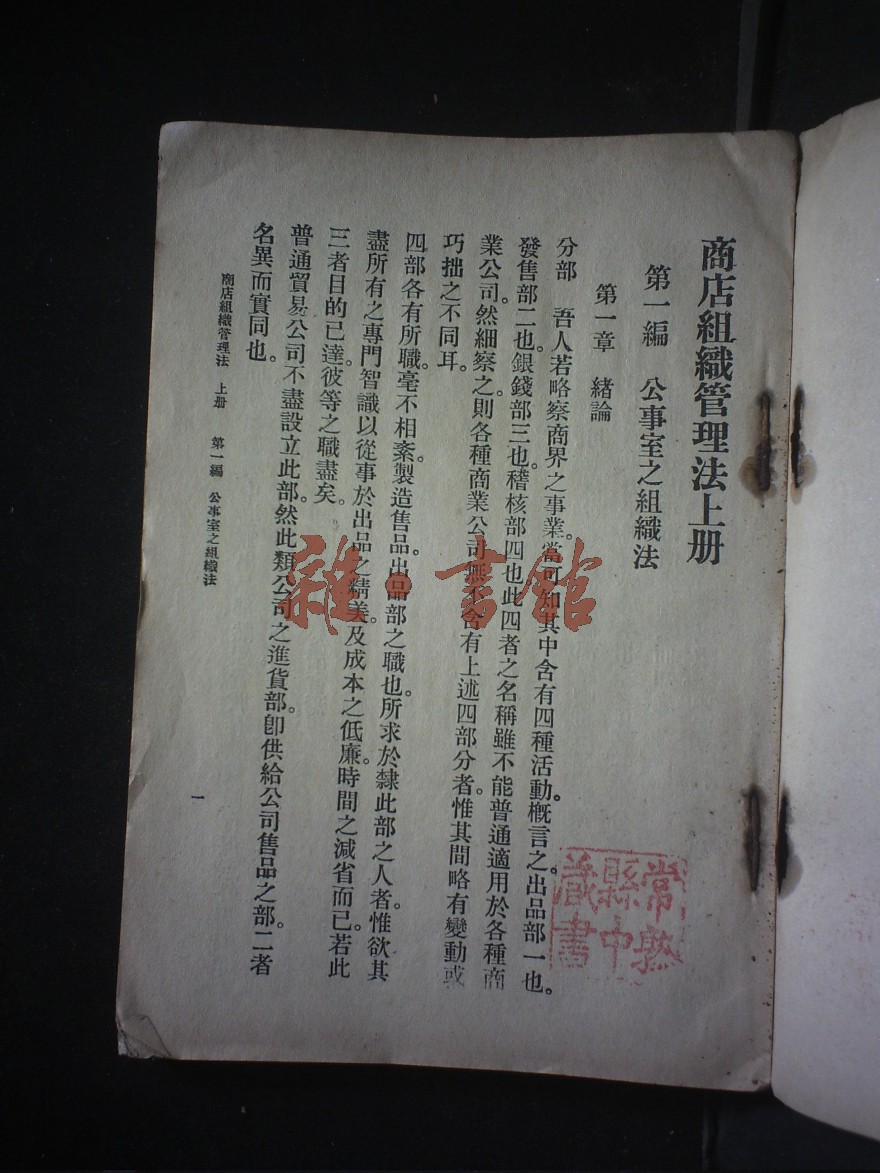 商店組織管理法上册
第一編　公事室之組織法
第一章　緒論
分部　吾人若略察商界之事業。當可知其中含有四種活動。概言之。出品部一也。
發售部二也。銀錢部三也。稽核部四也。此四者之名稱雖不能普通適用於各種商
業公司。然細察之。則各種商業公司無不含有上述四部分者。惟其間略有變動或
巧拙之不同耳。
四部各有所職。毫不相紊。製造售品。出品部之職也。所求於隸此部之人者。惟欲其
盡所有之專門智識以從事於出品之精美。及成本之低廉。時間之減省而已。若此
三者目的已達。彼等之職盡矣。
普通貿易公司不盡設立此部。然此類公司之進貨部。卽供給公司售品之部。二者
名異而實同也。
商店組織管理法　上册　第一編　公事室之組織法
一
常熟
縣中
藏書
雜·書館